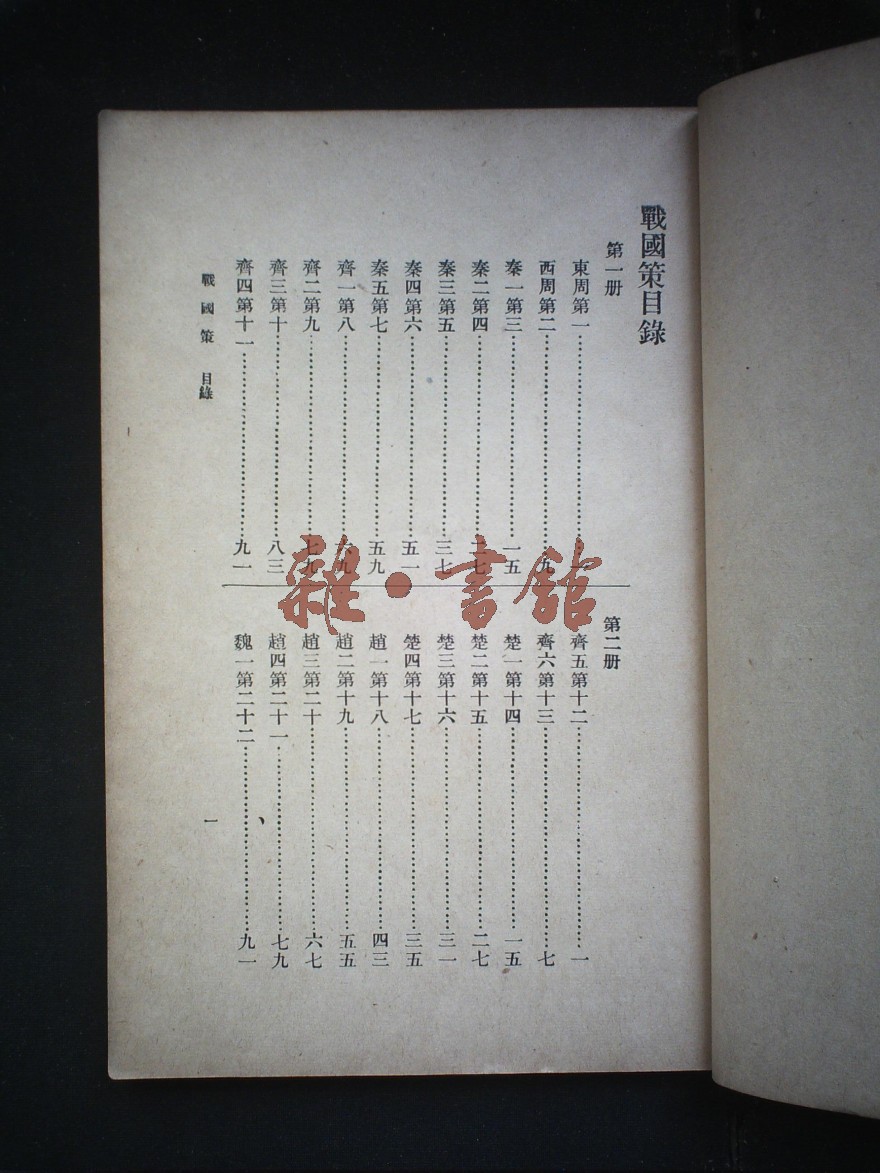 戰國策目錄
第一册
東周第一……一
西周第二……九
秦一第三……一五
秦二第四……二七
秦三第五……三七
秦四第六……五一
秦五第七……五九
齊一第八……六九
齊二第九……七九
齊三第十……八三
齊四第十一……九一
第二册
齊五第十二……一
齊六第十三……七
楚一第十四……一五
楚二第十五……二七
楚三第十六……三一
楚四第十七……三五
趙一第十八……四三
趙二第十九……五五
趙三第二十……六七
趙四第二十一……七九
魏一第二十二……九一
戰國策 目錄
一
雜·書館